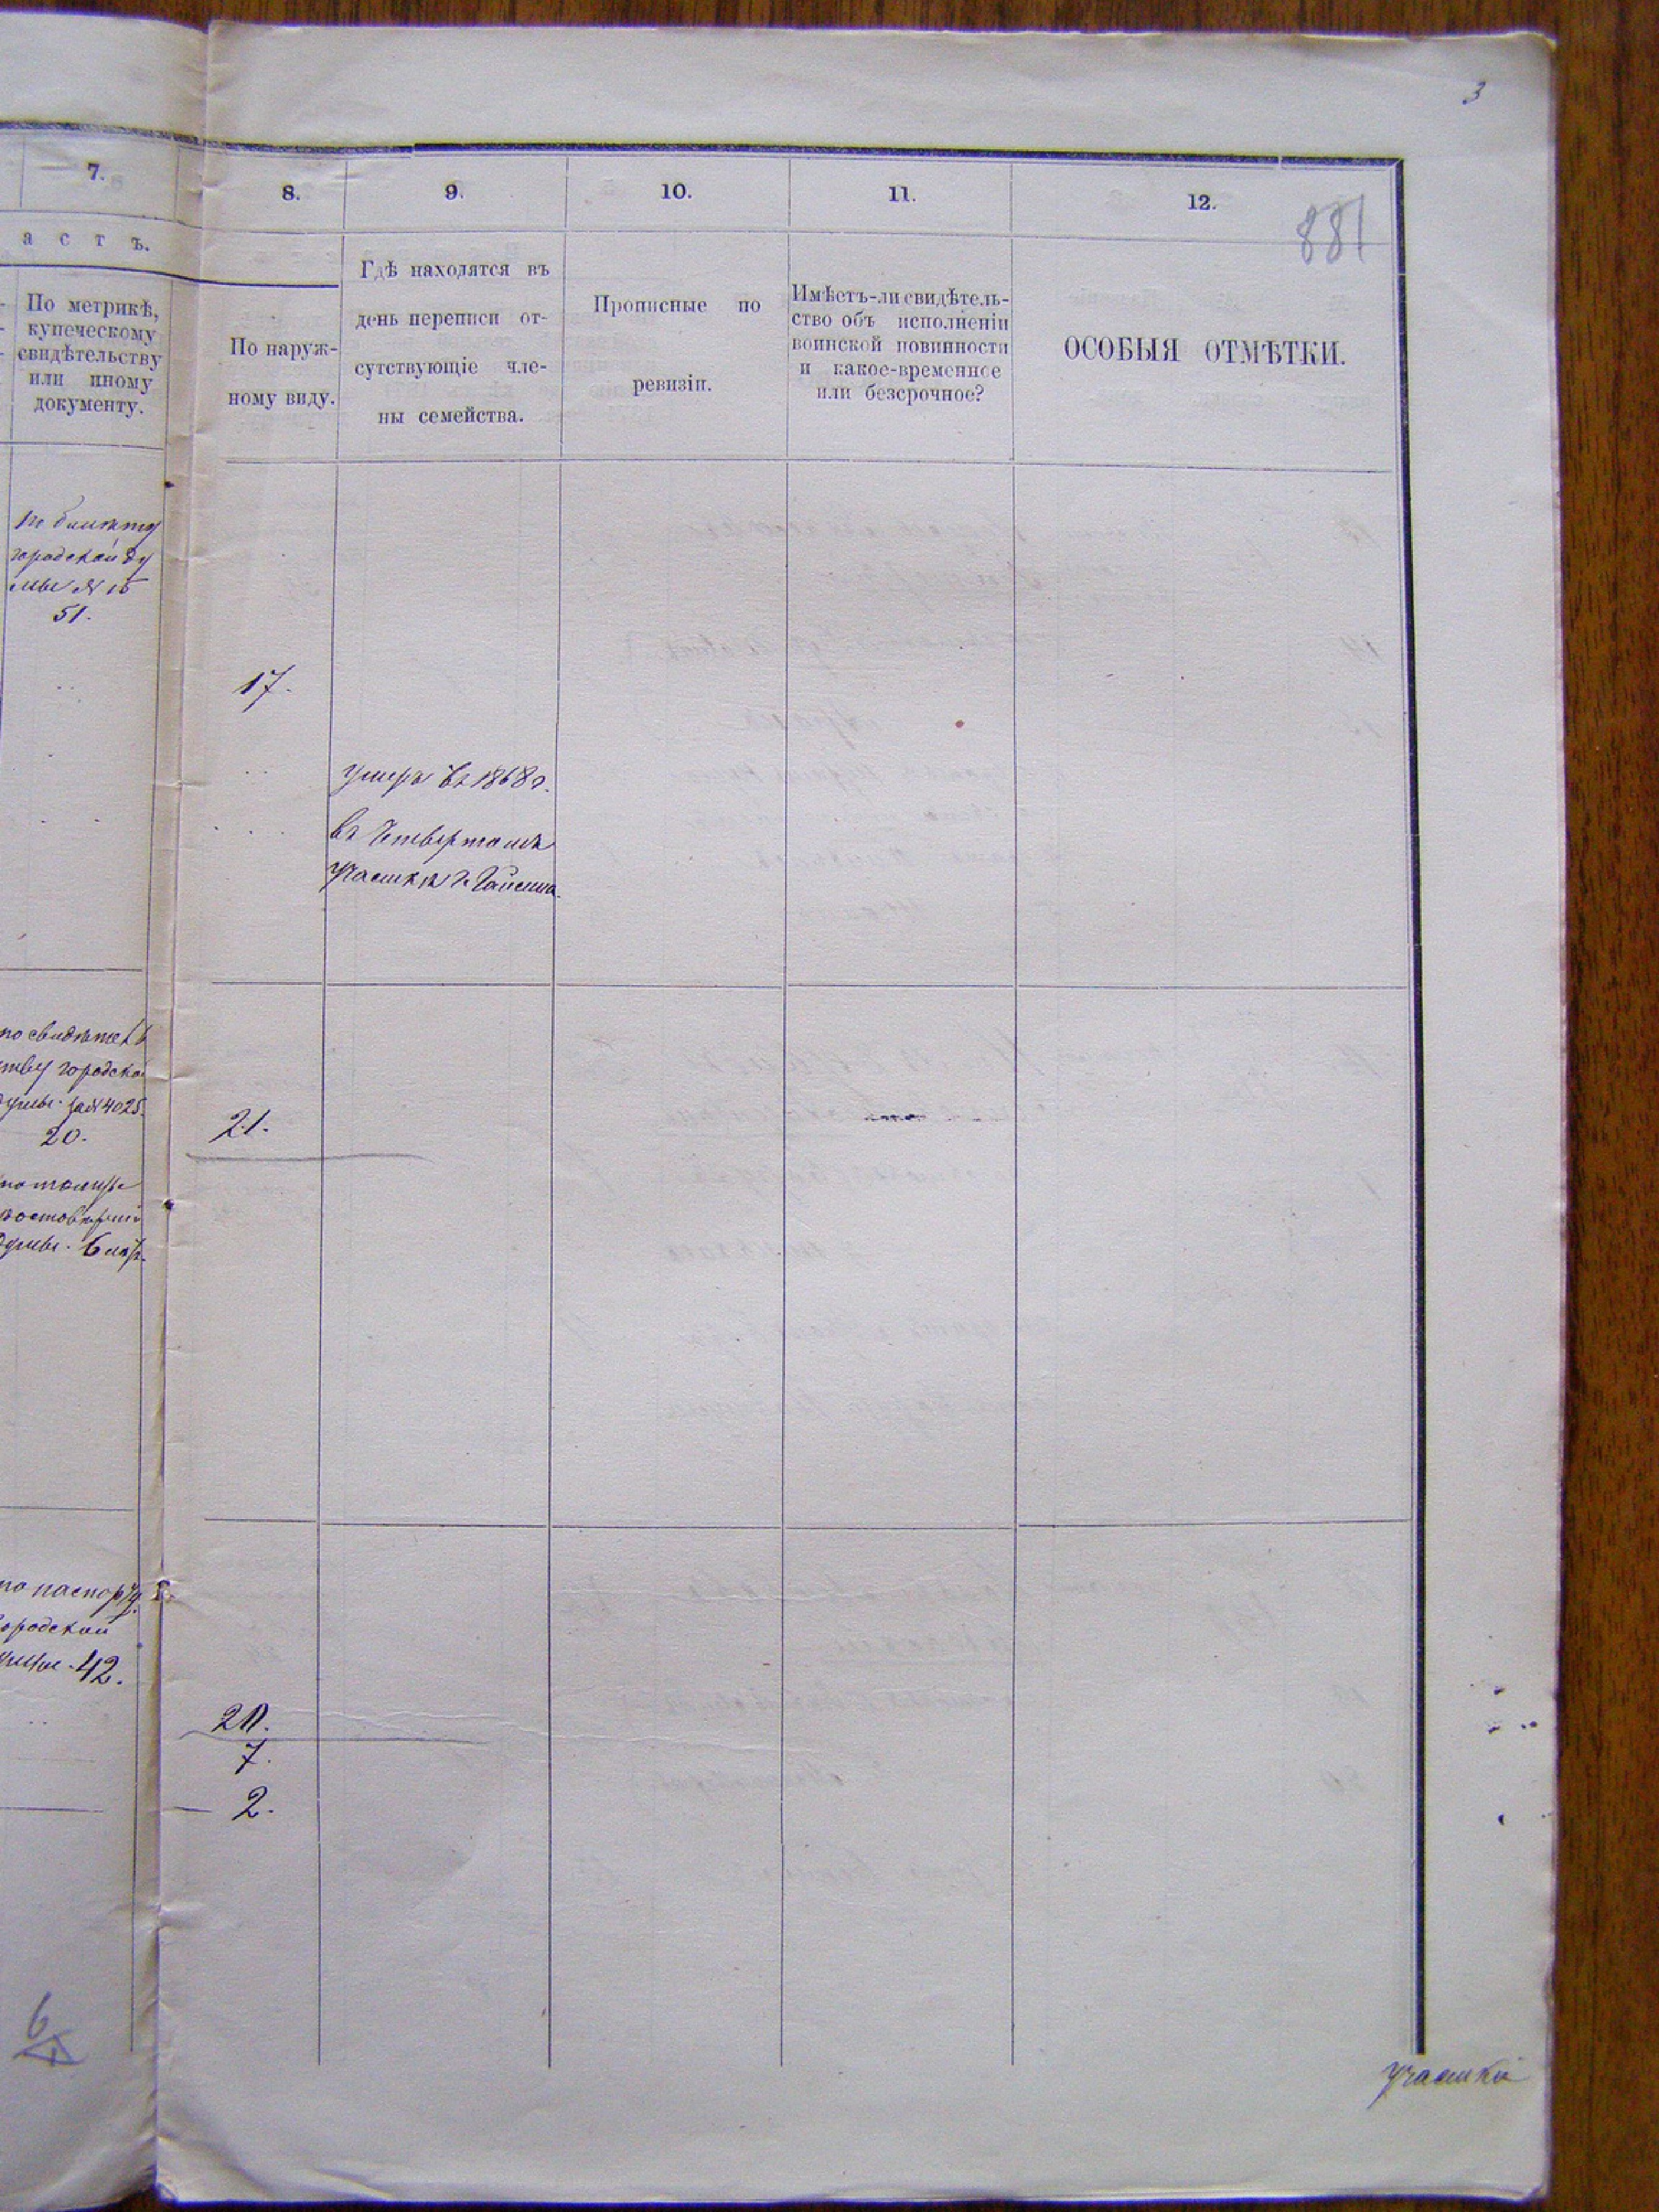 3
7.
8.
9.
10.
11.
12.
881
а с т ъ.
По метрикѣ,
купеческому
свидѣтельству
или иному
документу.
По наруж-
ному виду.
Гдѣ находятся въ
день переписи от-
сутствующіе чле-
ны семейства.
Прописные по
ревизіи.
Имѣетъ-ли свидѣтель-
ство объ исполненіи
воинской повинности
и какое-временное
или безсрочное?
ОСОБЫЯ ОТМѢТКИ.
по билету
городской ду
мы №
51.
17.
умеръ въ 1868 г.
въ Четвертомъ
участкѣ г. Гайсина
по свидѣтель
ству городской
думы за № 4025.
20.
21.
по таковому
думы.
по паспорту
городской
думы 42.
20.
7.
2.
6
участка